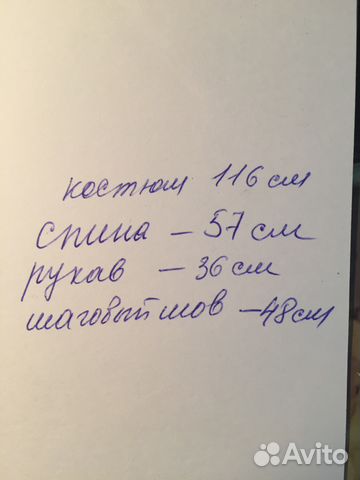 костюм 116 см
спина – 57 см
рукав – 36 см
шаговый шов – 48 см
Avito